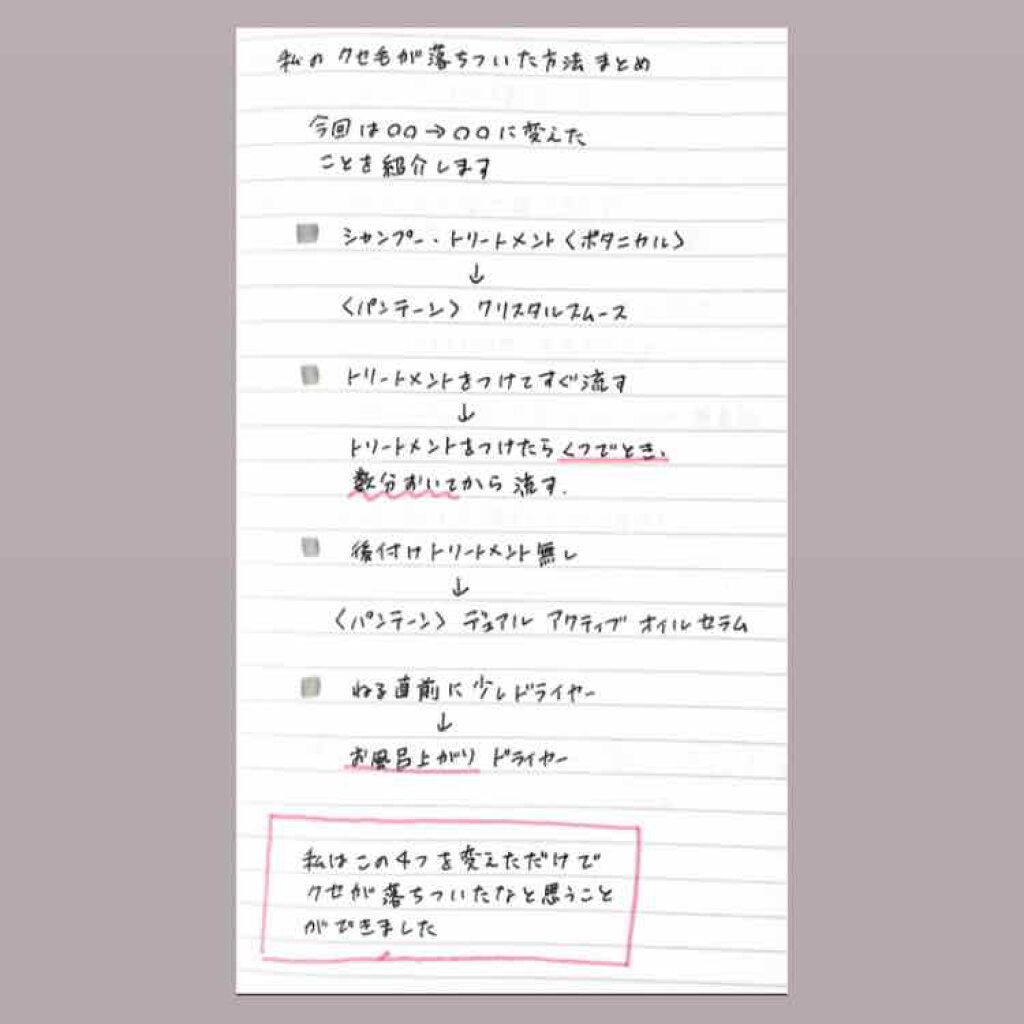 私の クセ毛が落ちついた方法まとめ
今回は〇〇→〇〇に変えた
ことを紹介します
シャンプー・トリートメント〈ボタニカル〉
↓
〈パンテーン〉 クリスタルスムース
トリートメントをつけてすぐ流す
↓
トリートメントをつけたらくしでとき、
数分おいてから 流す.
後付けトリートメント無し
↓
〈パンテーン〉 デュアル アクティブ オイルセラム
ねる直前に少しドライヤー
↓
お風呂上がり ドライヤー
私はこの4つを変えただけで
クセが落ちついたなと思うこと
ができました